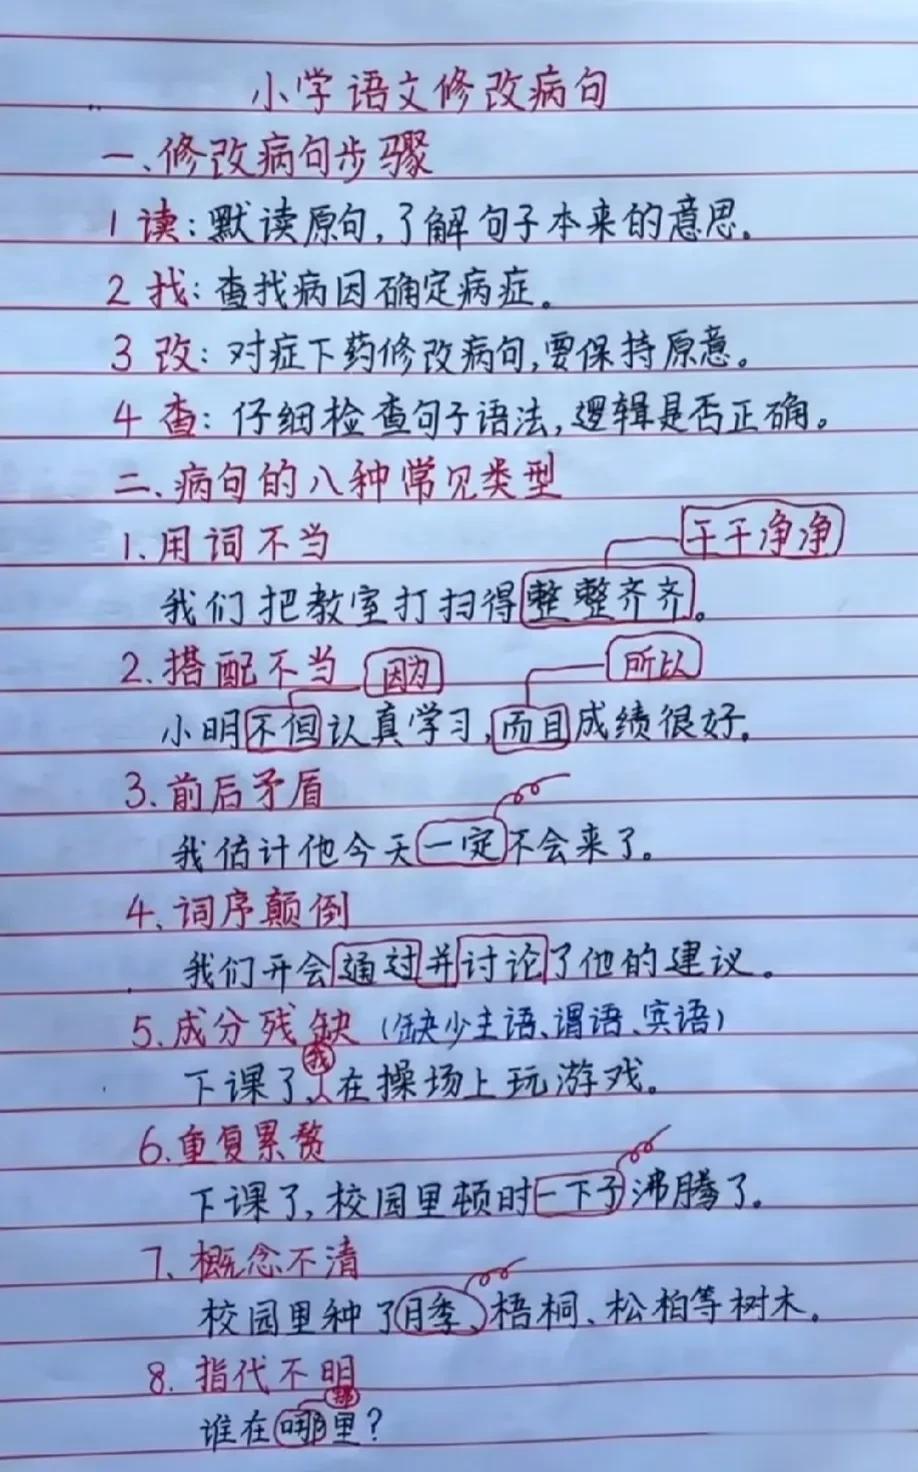 小学语文修改病句
一、修改病句步骤
1 读：默读原句，了解句子本来的意思。
2 找：查找病因确定病症。
3 改：对症下药修改病句，要保持原意。
4 查：仔细检查句子语法，逻辑是否正确。
二、病句的八种常见类型
1.用词不当
干干净净
我们把教室打扫得整整齐齐。
2.搭配不当
因为
所以
小明不但认真学习，而且成绩很好。
3.前后矛盾
我估计他今天一定不会来了。
4、词序颠倒
我们开会通过并讨论了他的建议。
5.成分残缺（缺少主语、谓语、宾语）
我
下课了，在操场上玩游戏。
6.重复累赘
下课了，校园里顿时一下子沸腾了。
7、概念不清
校园里种了月季、梧桐、松柏等树木。
8.指代不明
那
谁在哪里？